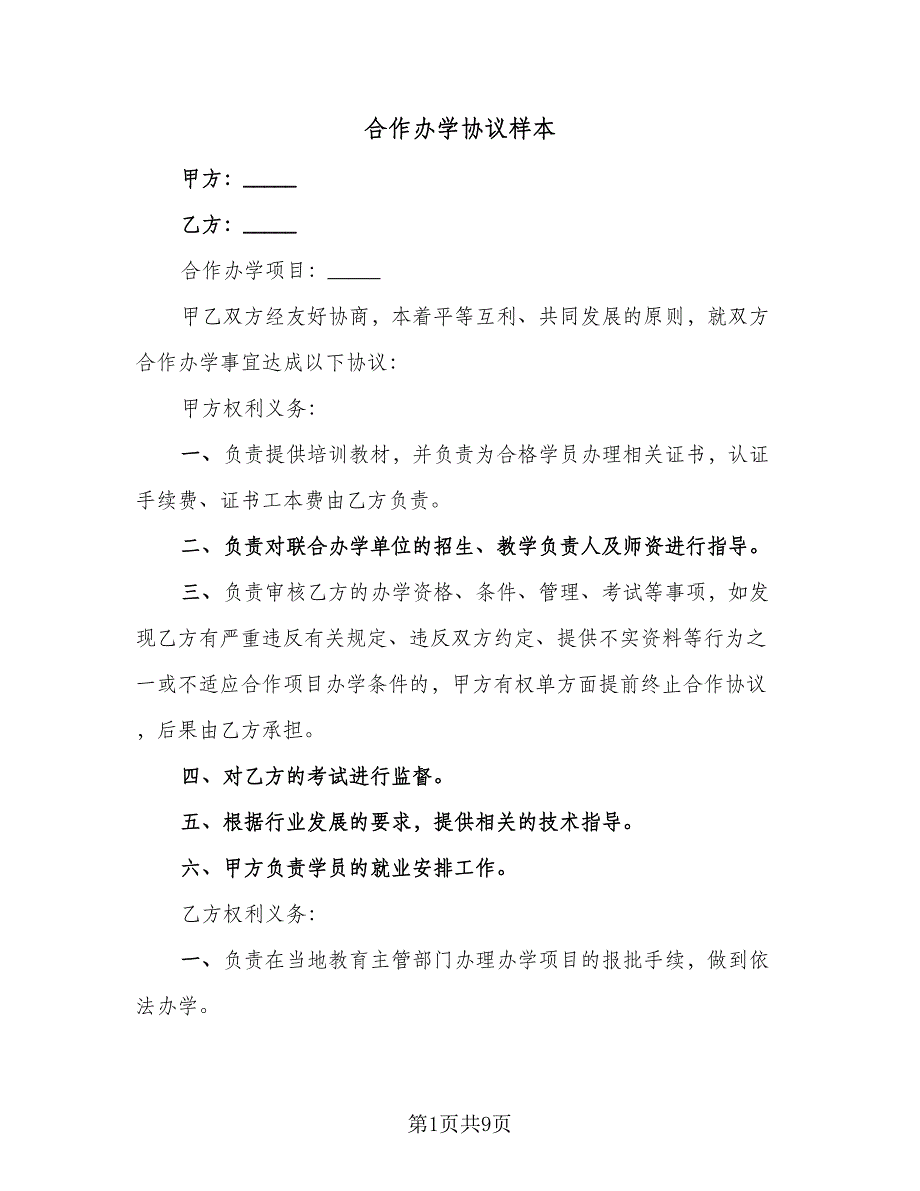 合作办学协议样本
甲方：_____
乙方：_____
合作办学项目：_____
甲乙双方经友好协商，本着平等互利、共同发展的原则，就双方
合作办学事宜达成以下协议：
甲方权利义务：
一、负责提供培训教材，并负责为合格学员办理相关证书，认证
手续费、证书工本费由乙方负责。
二、负责对联合办学单位的招生、教学负责人及师资进行指导。
三、负责审核乙方的办学资格、条件、管理、考试等事项，如发
现乙方有严重违反有关规定、违反双方约定、提供不实资料等行为之
一或不适应合作项目办学条件的，甲方有权单方面提前终止合作协议
，后果由乙方承担。
四、对乙方的考试进行监督。
五、根据行业发展的要求，提供相关的技术指导。
六、甲方负责学员的就业安排工作。
乙方权利义务：
一、负责在当地教育主管部门办理办学项目的报批手续，做到依
法办学。
第1页共9页